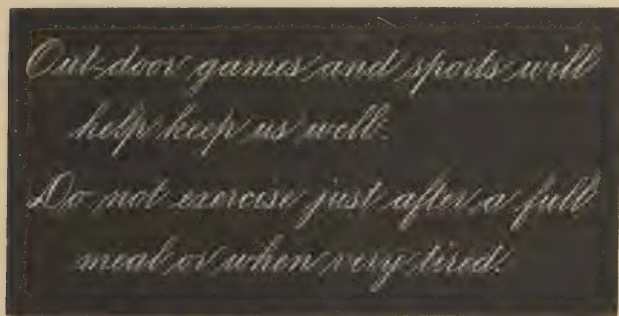 Out-door games and sports will
help keep us well.
Do not exercise just after a full
meal or when very tired.